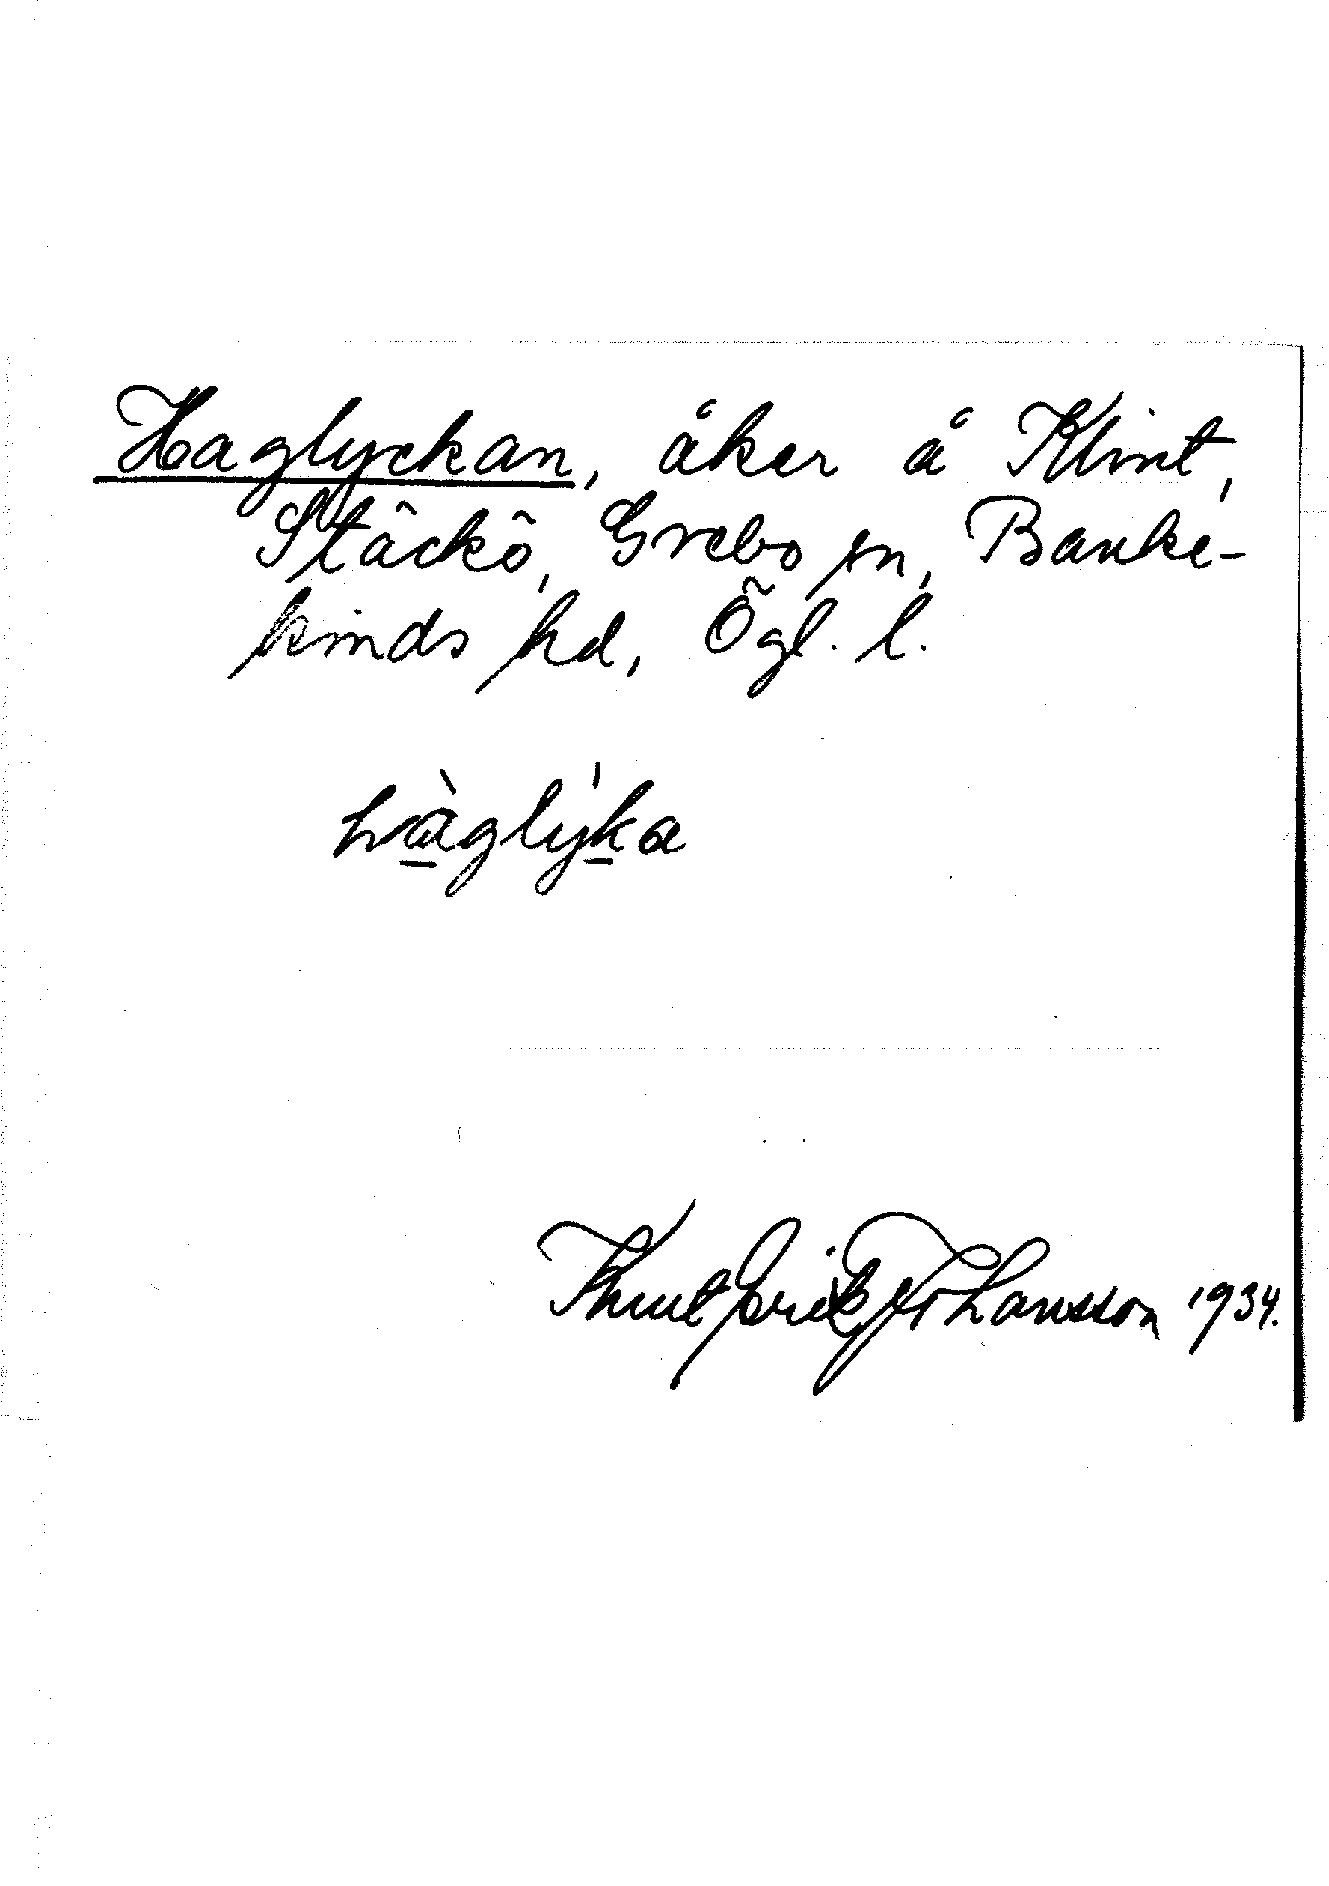 Haglyckan, åker å Klint,
Stäckö, Grebo sn, Banke-
kinds hd, Ögl. l.
hàglýka
Knut Erik Johansson 1934.